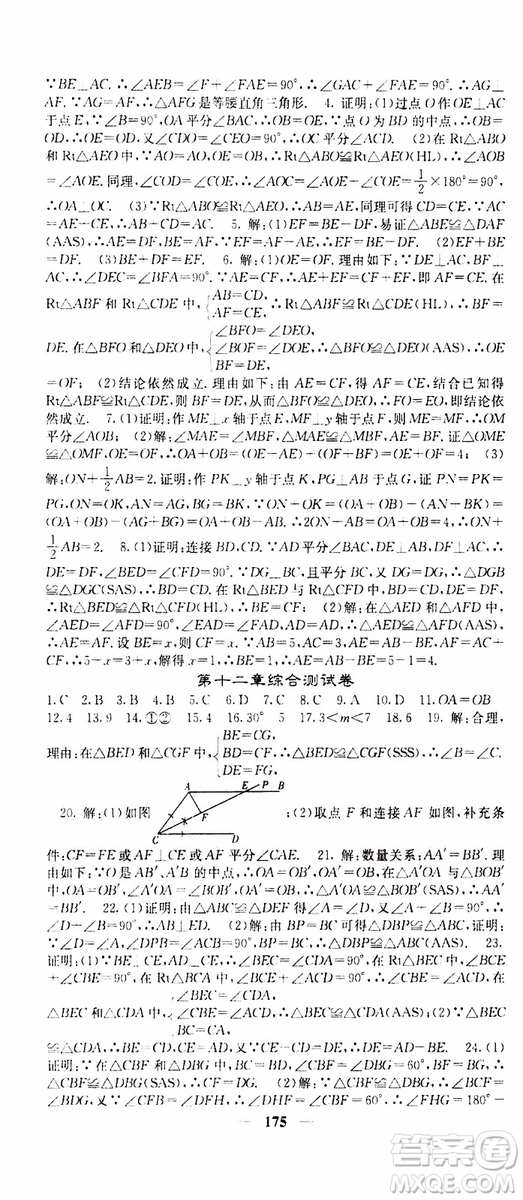 ∵BE⊥AC. ∴∠AEB=∠F+∠FAE=90°,∴∠GAC+∠FAE=90°. ∴AG⊥
AF. ∵AG=AF,∴△AFG是等腰直角三角形. 4. 证明:(1)过点O作OE⊥AC
于点E,∵∠ABD=90°,OA平分∠BAC,∴OB=OE,∵点O为BD的中点,∴OB=
OD,∴OE=OD,又∠CDO=∠CEO=90°,∴OC平分∠ACD. (2)在Rt△ABO
和Rt△AEO中,∵AO=AO,OB=OE,∴Rt△ABO≌Rt△AEO(HL),∴∠AOB
=∠AOE.同理,∠COD=∠COE,∴∠AOC=∠AOE+∠COE=1/2×180°=90°,
∴OA⊥OC. (3)∵Rt△ABO≌Rt△AEO,∴AB=AE.同理可得CD=CE,∵AC
=AE+CE,∴AB+CD=AC. 5. 解:(1)EF=BE-DF,易证△ABE≌△DAF
(AAS),∴AE=DF,∴BE=AF,∵EF=AF-AE,∴EF=BE-DF. (2)EF=AE-AF
=DF-BE. (3)BE+DF=EF. 6. 解:(1)OE=OF.理由如下:∵DE⊥AC,BF⊥
AC,∴∠DEC=∠BFA=90°. ∵AE=CF,∴AE+EF=CF+EF,即AF=CE,在
Rt△ABF和Rt△CDE中,{AB=CD,
AF=CE,∴Rt△ABF≌Rt△CDE(HL),∴BF=
DE.在△BFO和△DEO中,{∠BFO=∠DEO,
∠BOF=∠DOE,
BF=DE,∴△BFO≌△DEO(AAS),∴OE
=OF; (2)结论依然成立.理由如下:由AE=CF,得AF=CE,结合已知得
Rt△ABF≌Rt△CDE,则BF=DE,从而△BFO≌△DEO,∴FO=EO,即结论依
然成立. 7. (1)证明:作ME⊥x轴于点E,MF⊥y轴于点F,∴ME=MF,∴OM
平分∠AOB; (2)解:∠MAE=∠MBF,∴△MAE≌△MBF,∴AE=BF,△OME≌
△OMF,∴OE=OF,∴OA+OB=(OE-AE)+(OF+BF)=OE+OF=4; (3)
解:ON+1/2AB=2.证明:作PK⊥y轴于点K,PG⊥AB于点G,∴PN=PK=
PG,∴ON=OK,AN=AG,BG=BK,∴2ON=ON+OK=(OA+OB)-(AN+BK)=
(OA+OB)-(AG+BG)=(OA+OB)-AB=4-AB,∴2ON+AB=4,∴ON+
1/2AB=2. 8. (1)证明:连接BD,CD.∵AD平分∠BAC,DE⊥AB,DF⊥AC,∴DE=
DF,∠BED=∠CFD=90°.∵DG⊥BC,且平分BC,∴BG=CG,易得△DGB
≌△DGC(SAS),∴BD=CD.在Rt△BED和Rt△CFD中,DE=DF,BD=CD,
∴Rt△BED≌Rt△CFD(HL),∴BE=CF; (2)解:在△AED和△AFD中,
∠AED=∠AFD=90°,∠EAD=∠FAD,AD=AD,∴△AED≌△AFD(AAS),
∴AE=AF.设BE=x,则CF=x,∵AB=5,AC=3,AE=AB-BE,AF=AC+CF,
∴5-x=3+x,解得x=1.∴BE=1,∴AE=AB-BE=5-1=4.
第十二章综合测试卷
1.C 2.D 3.C 4.D 5.C 6.D 7.C 8.C 9.A 10.D 11.OA=OB
12.4 13.9 14.①② 15.4 16.30° 17.3<m<7 18.6 19.解:合理,
理由:在△BED和△CGF中,{BE=CG,
BD=CF,
DE=FG,∴△BED≌△CGF(SSS),∴∠B=∠C.
20.解:(1)如图 A E P B F C D ;(2)取点F和连接AF如图,补充条
件:CF=FE或AF⊥CE或AF平分∠CAE. 21.解:数量关系:AA'=BB'.理
由如下:∵O是AB'、A'B的中点,∴OA=OB',OA'=OB,在△A'OA与△BOB'
中,OA=OB',∠A'OA=∠BOB',OA'=OB,∴△A'OA≌△BOB'(SAS),∴AA'=
BB'. 22.(1)证明:由△ABC≌△DEF得∠A=∠D,又∠ANP=∠DNB,∠A=
∠D,∴∠APN=∠DBN=90°,∴AB⊥ED. (2)由BP=BC可得△DBP≌△ABC,
证明:在△DBP与△ABC中,∠D=∠A,BP=BC,∠B=∠B,∴△DBP≌△ABC. 23.
证明:(1)∵BE⊥CE,AD⊥CE,∴∠BEC=∠CDA=90°,在Rt△BEC中,∠BCE
+∠CBE=90°,在Rt△BCA中,∠BCE+∠ACD=90°,∴∠CBE=∠ACD,在
△BEC和△CDA中,{∠BEC=∠CDA,
∠CBE=∠ACD,
BC=AC,∴△BEC≌△CDA(AAS); (2)∵△BEC
≌△CDA,∴CE=AD,BE=CD,∴DE=CE-CD=AD-BE. 24.(1)
证明:∵在△CBF和△DBG中,BC=BD,∠CBF=∠DBG=60°,BF=BG,∴
△CBF≌△DBG(SAS),∴CF=DG; (2)解:∵△CBF≌△DBG,∴∠BCF=∠BDG,
又∵∠CFB=∠DFH,∴∠DHF=∠CBF=60°,∴∠FHG=180°-∠DHF=
175
答案圈
MXQE.COM